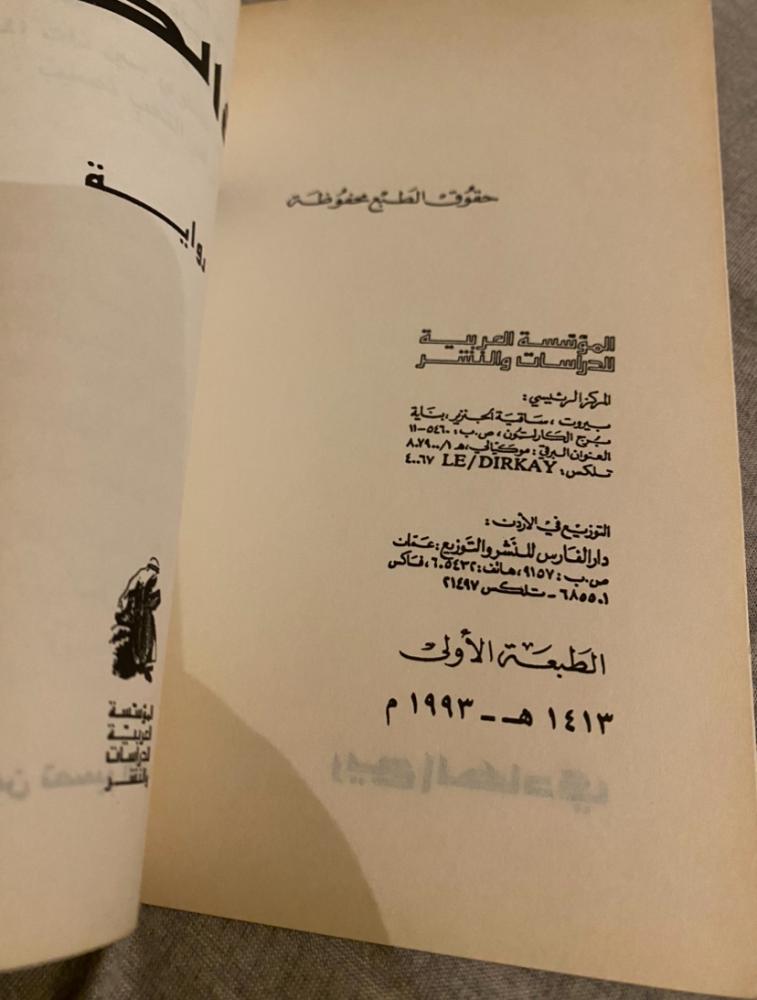 حقوق الطبع محفوظة
المؤسسة العربية
للدراسات والنشر
المركز الرئيسي:
بيروت، ساقية الجنزير، بناية
برج الكارلتون، ص.ب: ٥٤٦٠-١١
العنوان البرقي: موكيالي، هـ ٨٠٧٩٠٠/١
تلكس: LE/DIRKAY ٤٠٠٦٧
التوزيع في الأردن:
دار الفارس للنشر والتوزيع: عمّان
ص.ب: ٩١٥٧، هاتف: ٦٠٥٤٣٢، فاكس
٦٨٥٥٠١ - تلكس ٢١٤٩٧
الطبعة الأولى
١٤١٣ هـ - ١٩٩٣ م
رواية
المؤسسة
العربية
للدراسات
والنشر